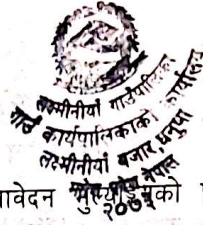 लक्ष्मीनीयाँ गाउँपालिका
गाउँ कार्यपालिकाको कार्यालय
लक्ष्मीनीयाँ बजार धनुषा
नेपाल
२०७३
ावेदन
को